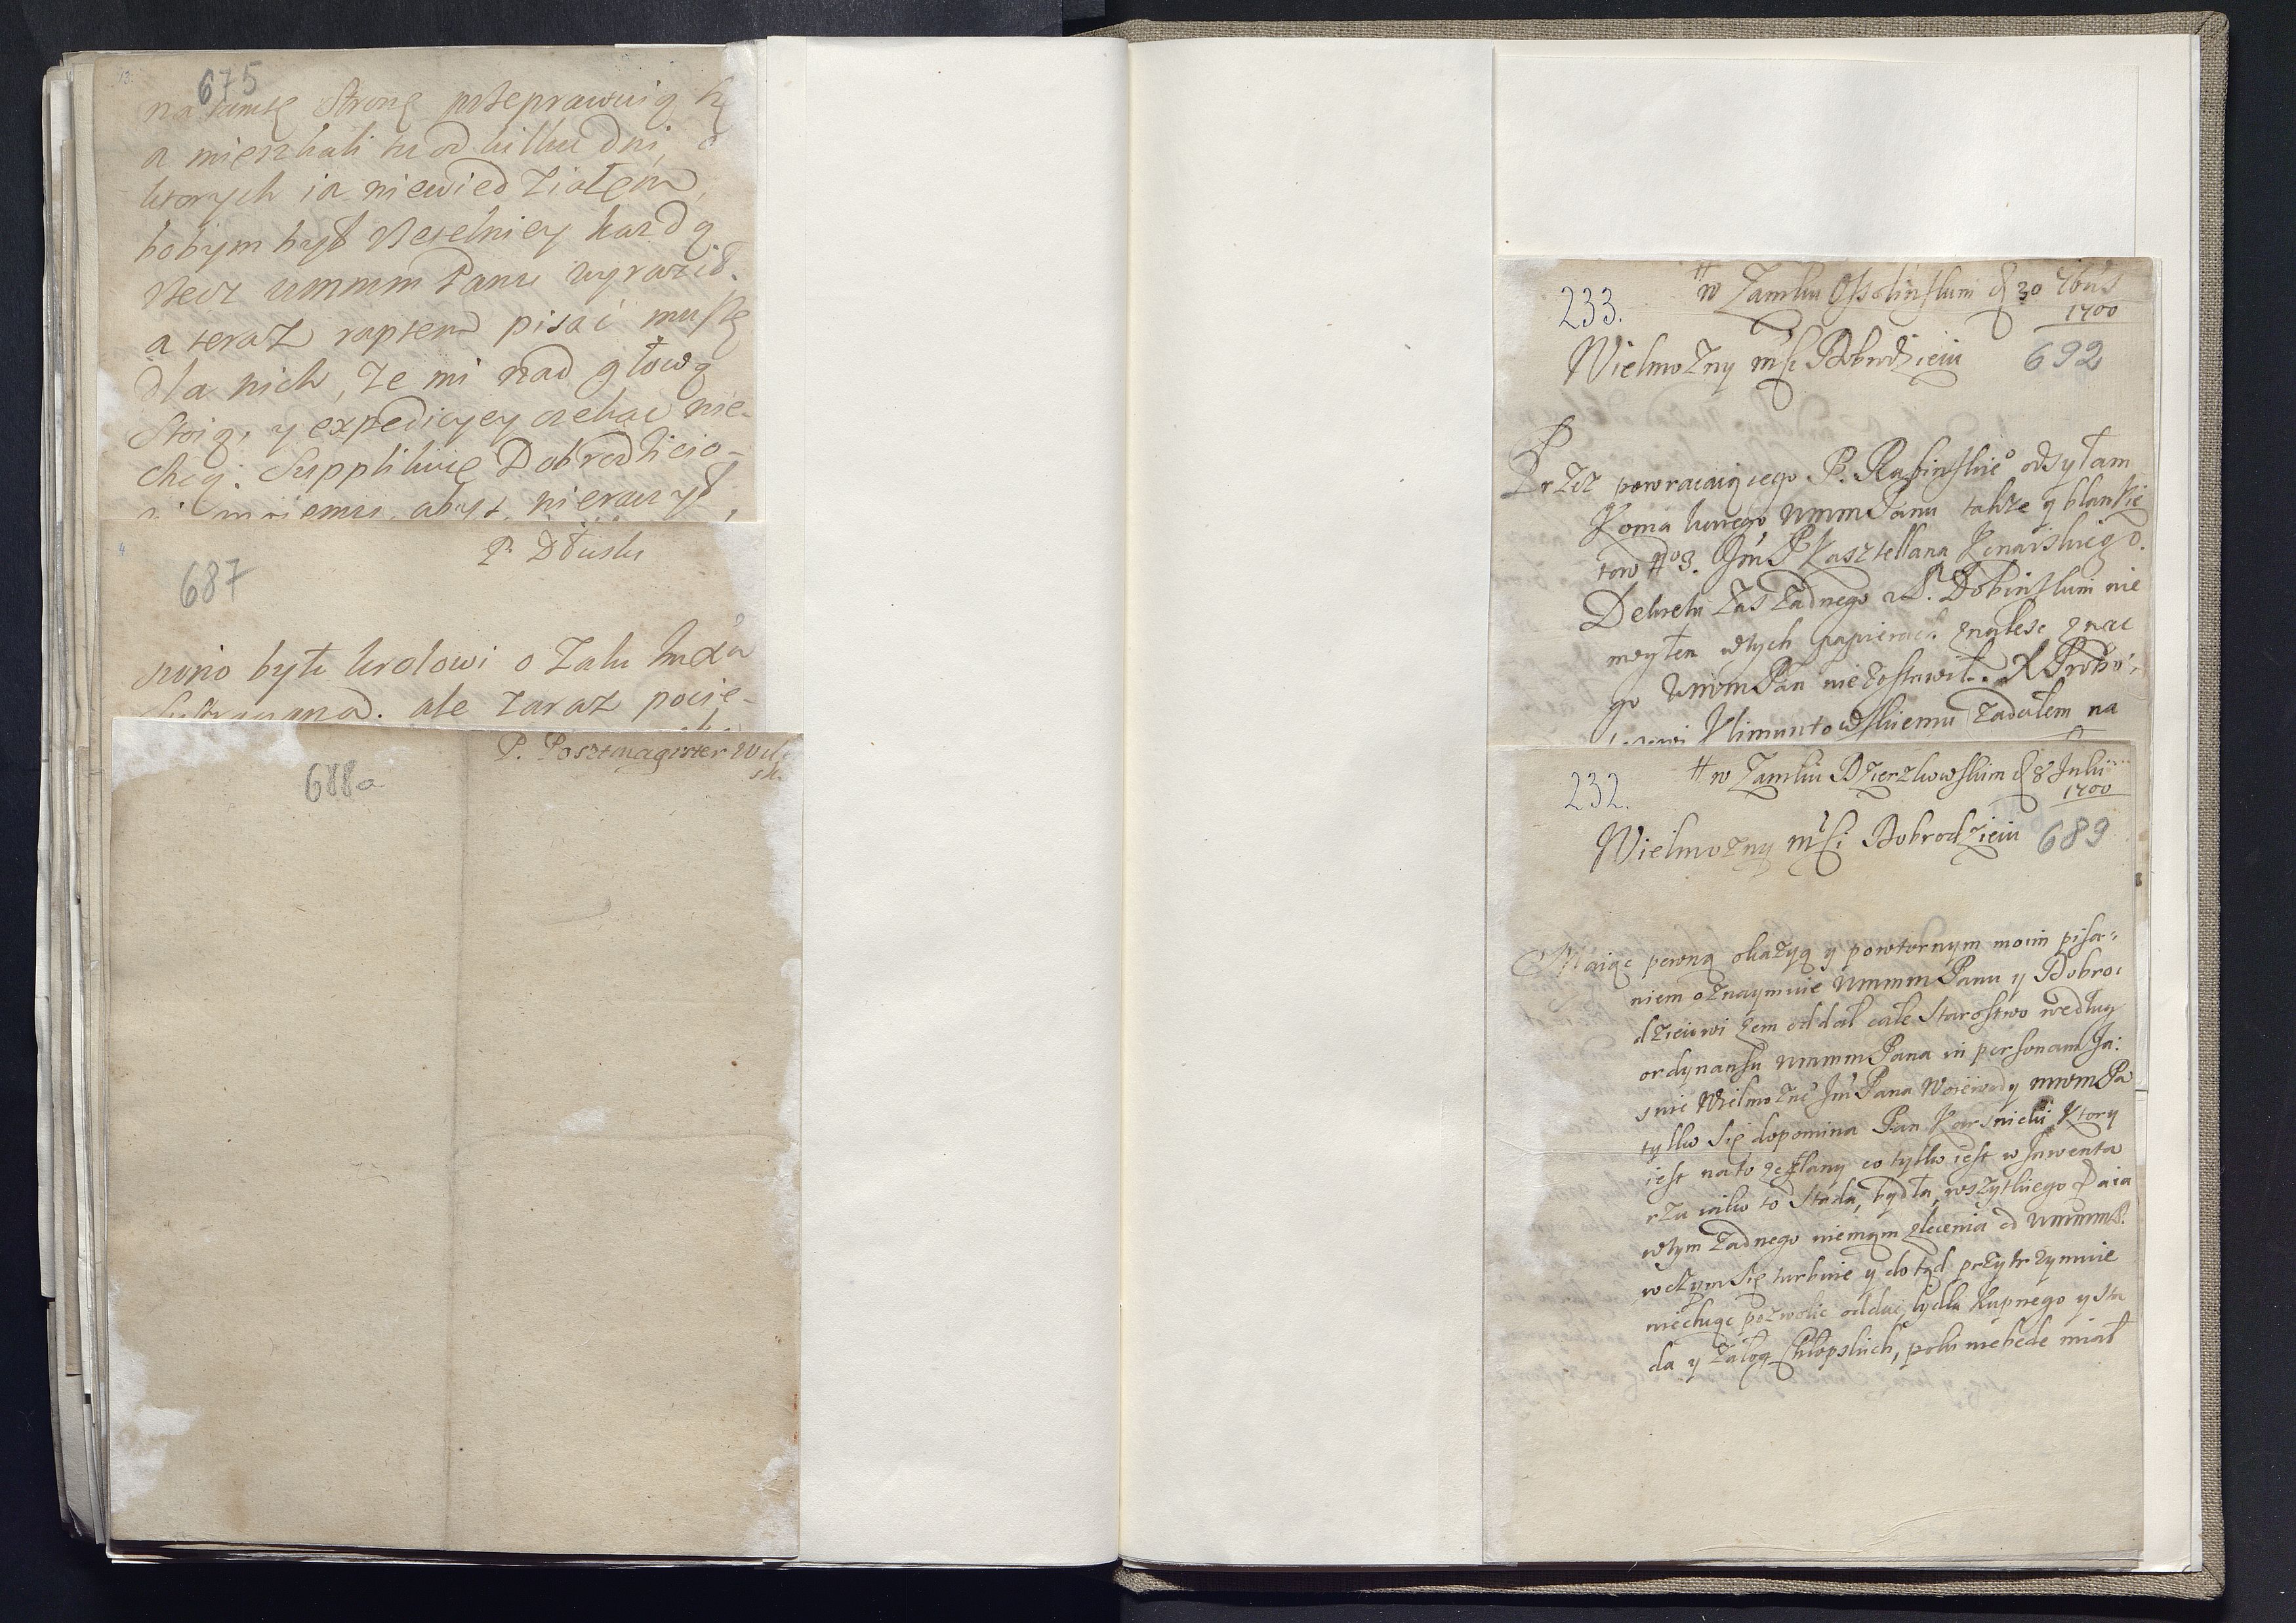 13.
675
na tamtę Stronę przeprawuią Się
a mieszkali tu od kilku dni, o
ktorych ia niewiedziałem,
bobym był rzetelniey kazdą
rzecz ummm Panu wyraził.
a teraz raptem pisać muszę
dla nich, ze mi nad głową
Stoią, y expedicyey czekac nie-
chcą. Supplikuię Dobrodzieio-
abyś nieraczył,
4
P. Dłuski
687
było krolowi o zalu
ale zaraz pocie-
P. Posztmagister Wil
688a
233.
# w Zamku Ossolinskim d 30 7bris
1700
Wielmozny mśći Dobrodzieiu
692
Przez powracaiącego P. Rabinskieo odsyłam
Ummm Panu takze y blankie
tow No 3. Jm P Kasztellana Konarskiego.
Dekretu zas zadnego z P. Dobinskim nie
w tych papierach znalesc znac
go Ummm Pan nie zostawił. X Probo,
Klimuntowskiemu zadałem na
232.
# w Zamku Dzierzkowskim d 8 Julii
1700
Wielmozny mśći Dobrodzieiu
689
Maiąc pewną okazyą y powtornym moim pisa,,
niem oznaymuie Ummm Panu y Dobro,
dzieiowi zem oddał całe Starostwo według
ordynansu Ummm Pana in personam Ja:
snie Wielmozneo Jm Pana Woiewody mwm Pa
tylko się dopomina Pan Karsnicki Ktory
iest na to zesłany co tylko iest w Inwenta
rzu iako to Stada, bydła wszytkiego a ia
w tym zadnego niemam zlecenia od Ummm P.
w czym się turbuie y dotąd przytrzymuie
niechcąc pozwolic oddac bydła kupnego y sta
da y załog Chłopskich, poki niebede miał